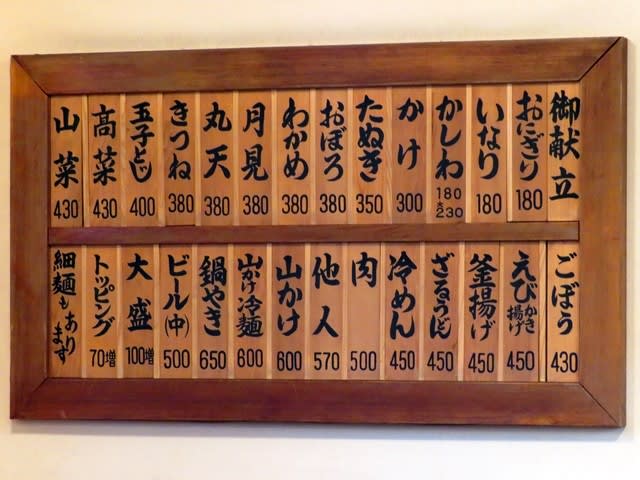 御献立
おにぎり 180
いなり 180
かしわ 180 大230
かけ 300
たぬき 350
おぼろ 380
わかめ 380
月見 380
丸天 380
きつね 380
玉子とじ 400
高菜 430
山菜 430
ごぼう 430
えびかき揚げ 450
釜揚げ 450
ざるうどん 450
冷めん 450
肉 500
他人 570
山かけ 600
山かけ冷麺 600
鍋やき 650
ビール(中) 500
大盛 100増
トッピング 70増
細麺もあります